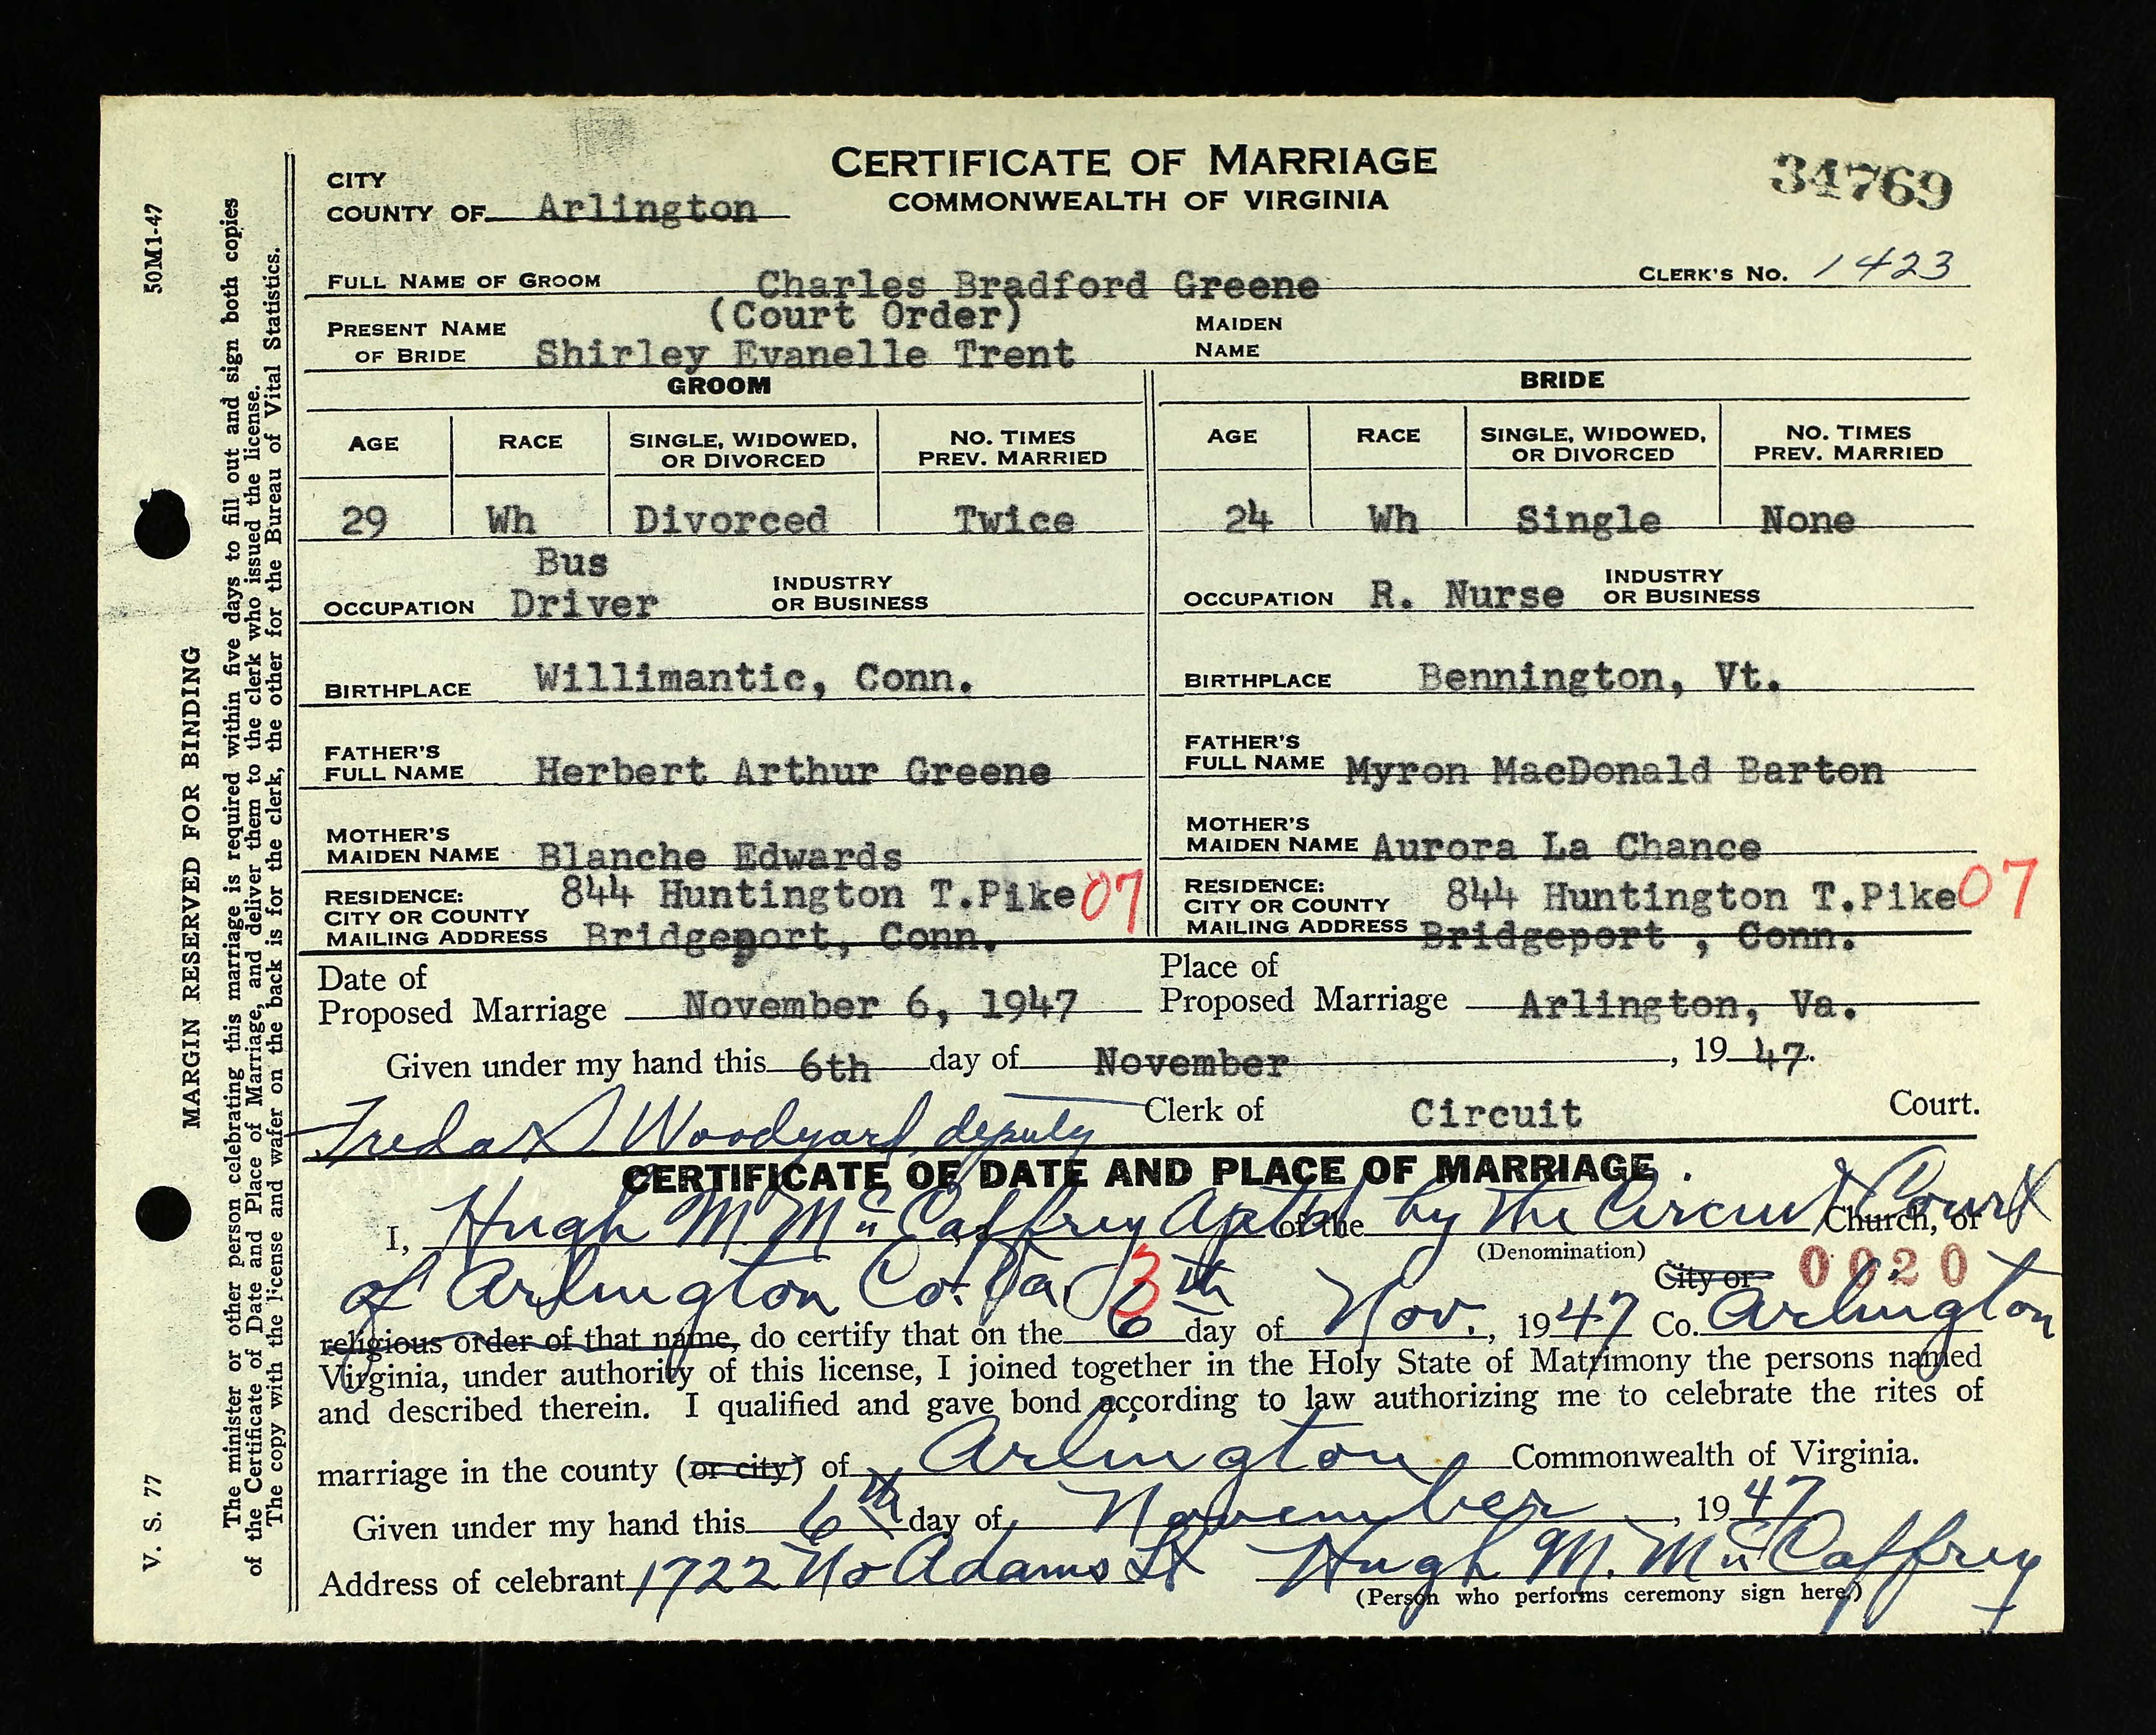 CERTIFICATE OF MARRIAGE
COMMONWEALTH OF VIRGINIA
34769
CITY
COUNTY OF Arlington
FULL NAME OF GROOM Charles Bradford Greene CLERK'S NO. 1423
(Court Order)
PRESENT NAME OF BRIDE Shirley Evanelle Trent MAIDEN NAME
GROOM BRIDE
AGE RACE SINGLE, WIDOWED, OR DIVORCED NO. TIMES PREV. MARRIED AGE RACE SINGLE, WIDOWED, OR DIVORCED NO. TIMES PREV. MARRIED
29 Wh Divorced Twice 24 Wh Single None
OCCUPATION Bus Driver INDUSTRY OR BUSINESS OCCUPATION R. Nurse INDUSTRY OR BUSINESS
BIRTHPLACE Willimantic, Conn. BIRTHPLACE Bennington, Vt.
FATHER'S FULL NAME Herbert Arthur Greene FATHER'S FULL NAME Myron MacDonald Barton
MOTHER'S MAIDEN NAME Blanche Edwards MOTHER'S MAIDEN NAME Aurora La Chance
RESIDENCE: CITY OR COUNTY MAILING ADDRESS 844 Huntington T.Pike 07 Bridgeport, Conn. RESIDENCE: CITY OR COUNTY MAILING ADDRESS 844 Huntington T.Pike 07 Bridgeport , Conn.
Date of Proposed Marriage November 6, 1947 Place of Proposed Marriage Arlington, Va.
Given under my hand this 6th day of November, 1947.
Freda S Woodyard, deputy Clerk of Circuit Court.
CERTIFICATE OF DATE AND PLACE OF MARRIAGE
I, Hugh M. McCaffrey Aptd of the by the Circuit Court Church, or
(Denomination)
of Arlington Co. Va. 3 th City or 0020
religious order of that name, do certify that on the 6 day of Nov., 1947 Co. Arlington
Virginia, under authority of this license, I joined together in the Holy State of Matrimony the persons named
and described therein. I qualified and gave bond according to law authorizing me to celebrate the rites of
marriage in the county (or city) of Arlington Commonwealth of Virginia.
Given under my hand this 6th day of November, 1947
Address of celebrant 1722 No Adams St Hugh M. McCaffrey
(Person who performs ceremony sign here.)
V. S. 77
MARGIN RESERVED FOR BINDING
50M1-47
The minister or other person celebrating this marriage is required within five days to fill out and sign both copies
of the Certificate of Date and Place of Marriage, and deliver them to the clerk who issued the license.
The copy with the license and wafer on the back is for the clerk, the other for the Bureau of Vital Statistics.